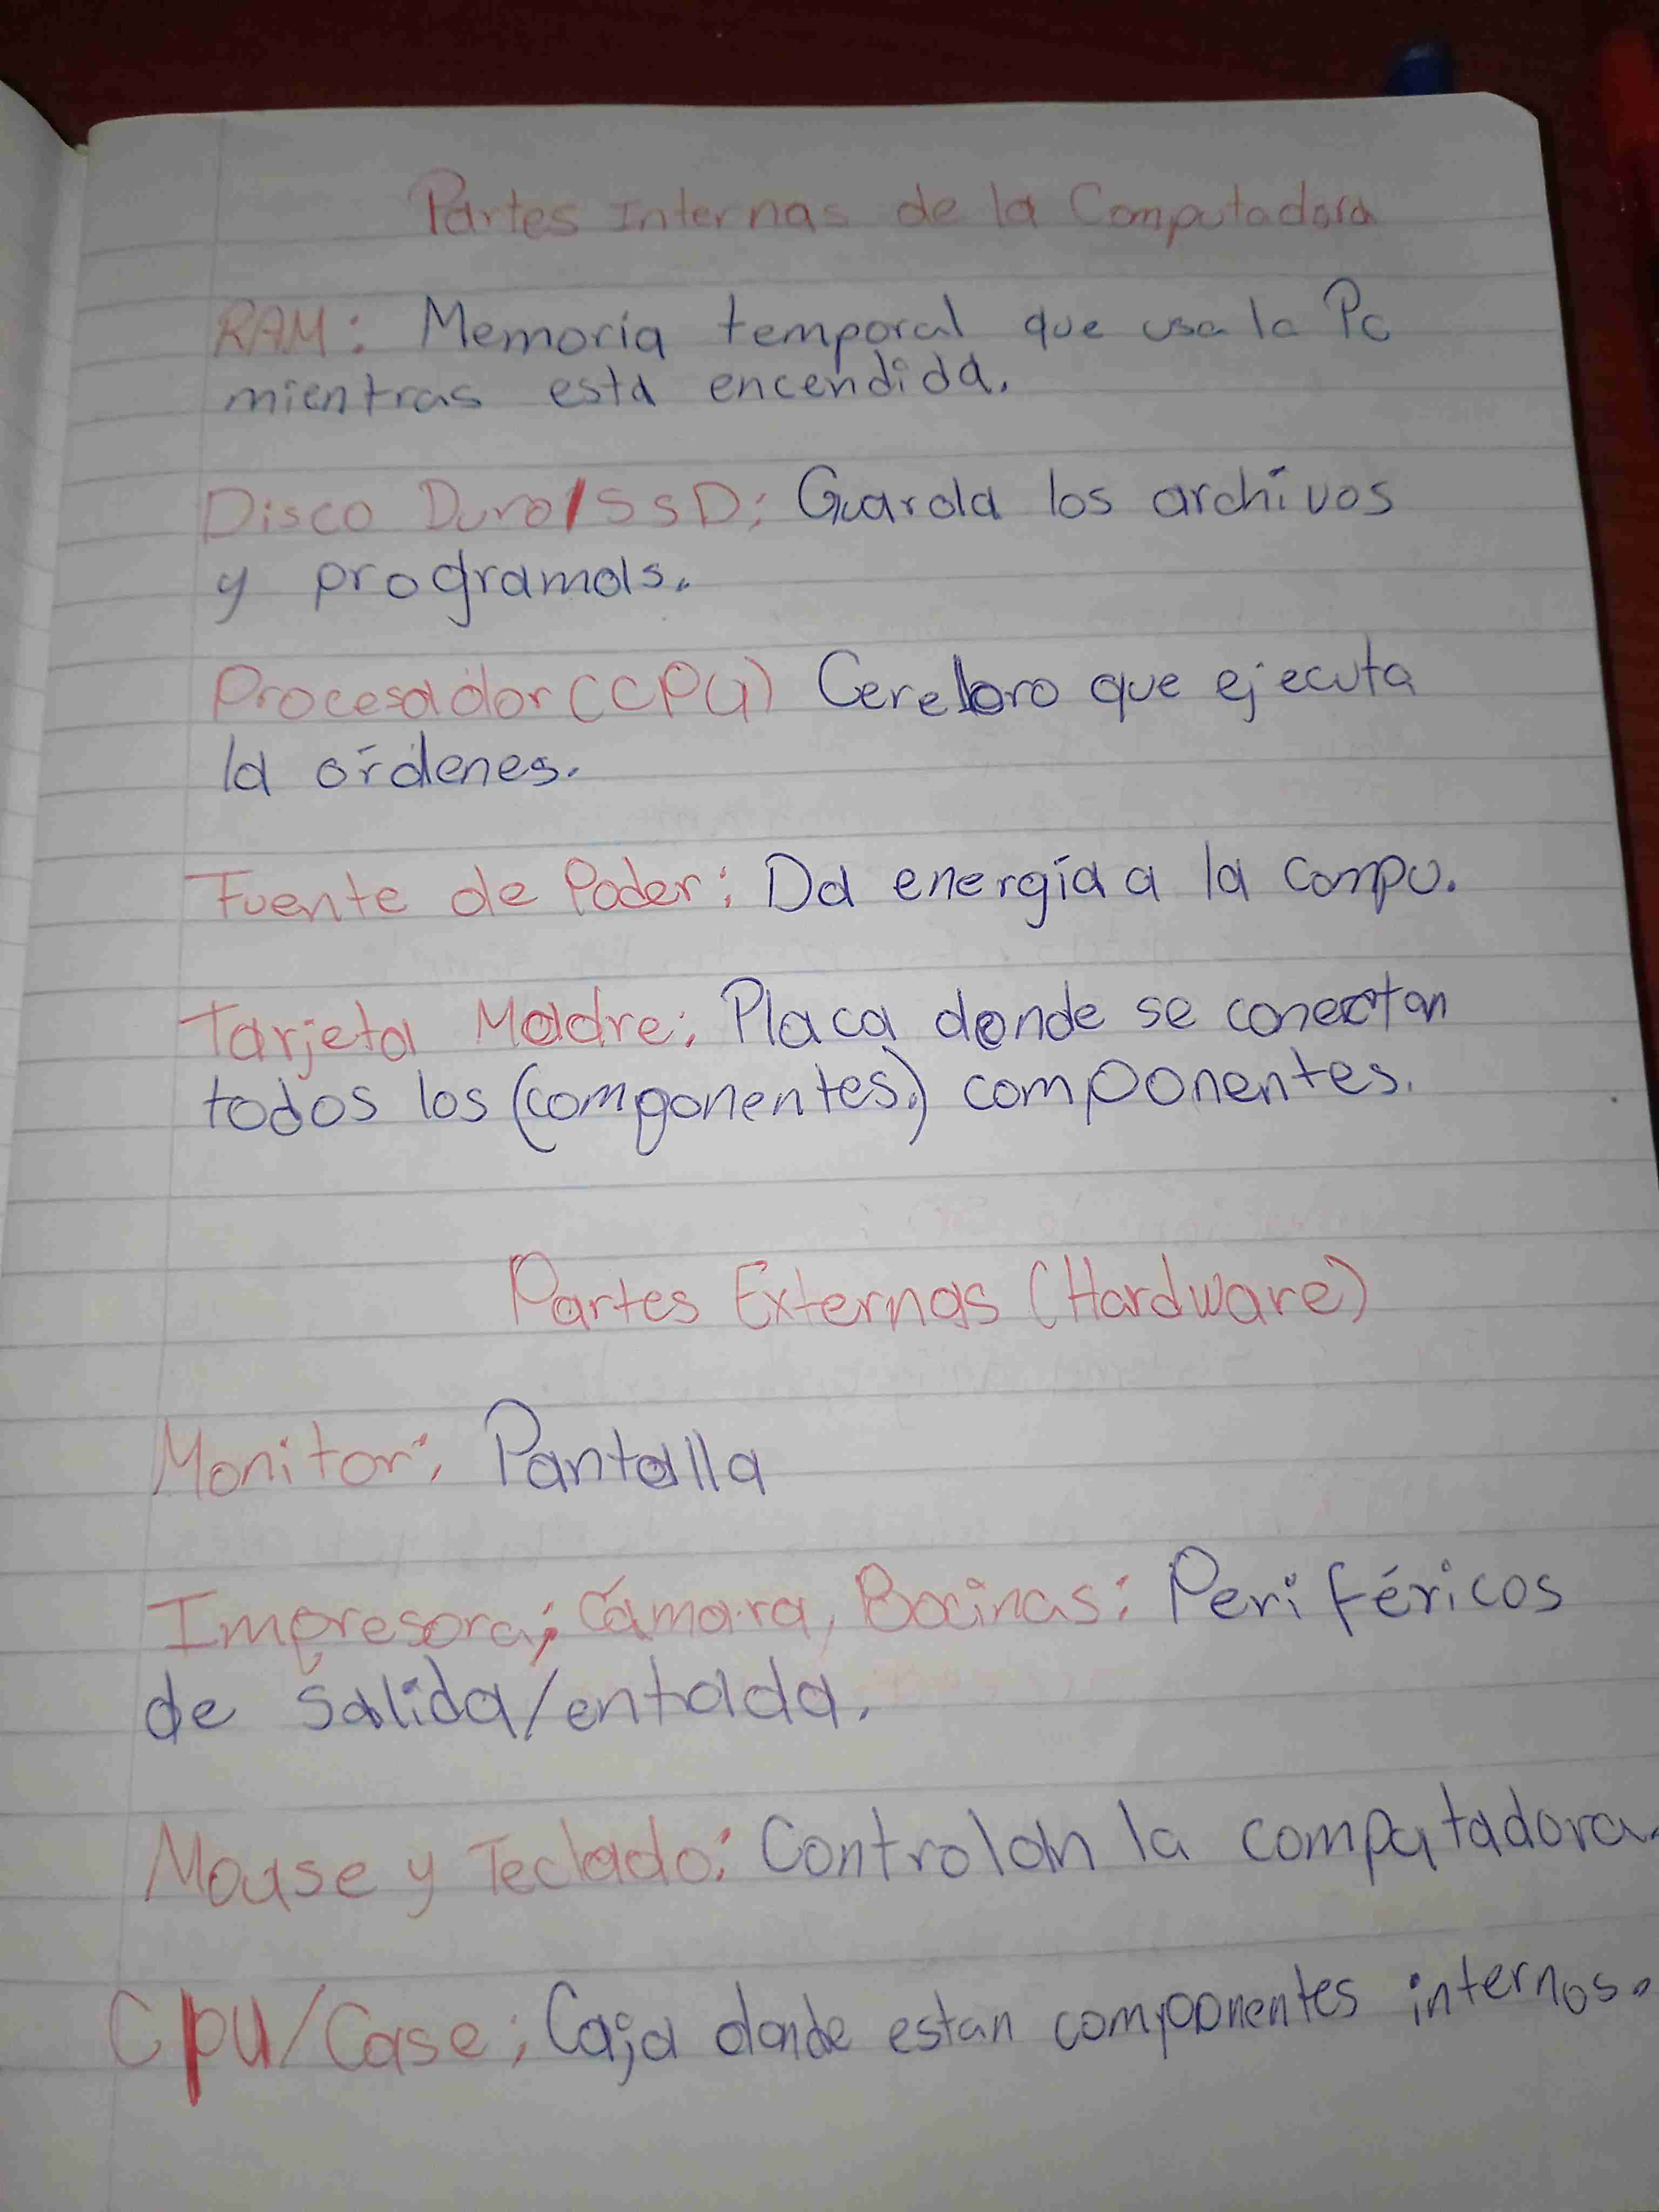 Partes Internas de la Computadora
RAM: Memoria temporal que usa la Pc
mientras esta encendida.
Disco Duro/SSD: Guarda los archivos
y programas.
Procesador (CPU) Cerebro que ejecuta
la órdenes.
Fuente de Poder: Da energía a la compu.
Tarjeta Madre: Placa donde se conectan
todos los (componentes.) componentes.
Partes Externas (Hardware)
Monitor: Pantalla
Impresora, Cámara, Bocinas: Periféricos
de salida/entrada.
Mouse y Teclado: Controlan la computadora.
Cpu/Case: Caja donde estan componentes internos.